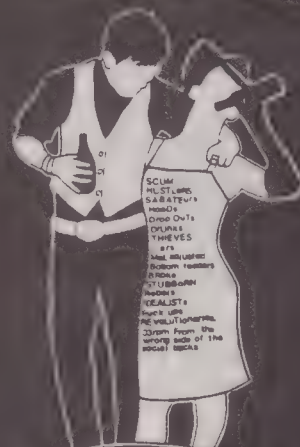 SCUM
HUSTLERS
SABATEURS
HooDs
Drop OuTs
DrUnks
THIEVES
ers
Mal adjusted
Bottom feeders
BROKe
STUBBoRN
Rebels
IDEALISTs
Fuck ups
REVoLUTIoNaRIes
Born From the
wrong side of the
social tracks